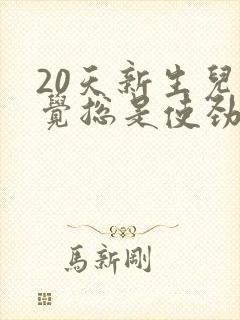 20天新生兒
覺總是使劲
馬新剛